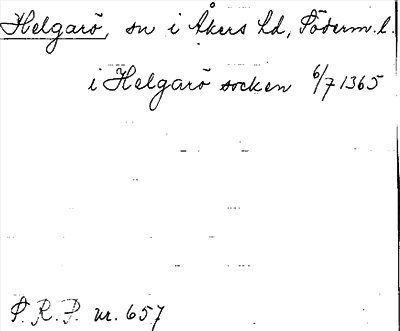 Helgarö, sn i Åkers hd, Söderm. l.
i Helgarö socken 6/7 1365
P. R. P. nr. 657